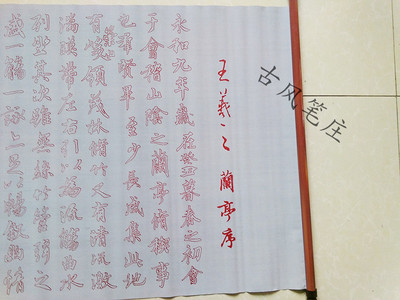 王羲之 蘭亭序
永和九年歲在癸丑暮春之初會
于會稽山陰之蘭亭脩稧事
也羣賢畢至少長咸集此地
有崇山峻領茂林脩竹又有清流激
湍暎帶左右引以為流觴曲水
列坐其次雖無絲竹管弦之
盛一觴一詠亦足以暢敘幽情
古风笔庄